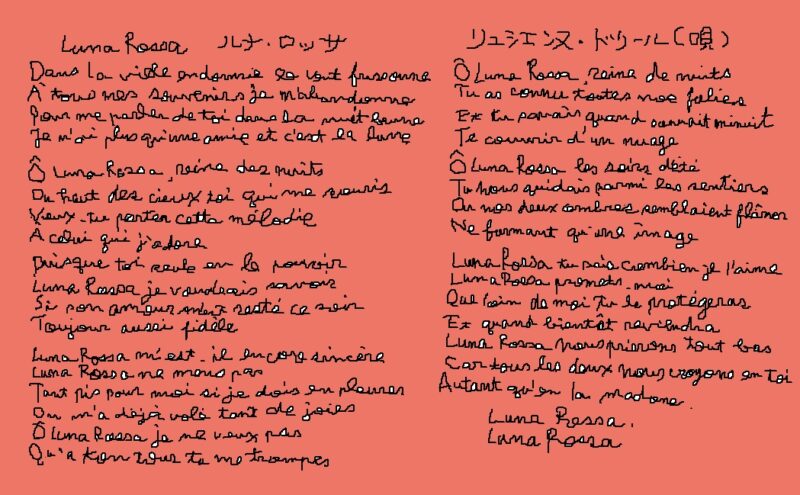 Luna Rossa ルナ・ロッサ
Dans la ville endormie et tout frissonne
À tous mes souvenirs je m'abandonne
Pour me parler de toi dans la nuit brune
Je n'ai plus qu'une amie et c'est la lune
Ô Luna Rossa, reine des nuits
Du haut des cieux toi qui me souris
Vieux-tu porter cette mélodie
À celui qui j'adore
Puisque toi seule en le pouvoir
Luna Rossa je voudrais savoir
Si son amour m'est resté ce soir
Toujour aussi fidèle
Luna Rossa m'est-il encore sincère
Luna Rossa ne mens pas
Tant pis pour moi si je dois en pleurer
On m'a déjà volé tant de joies
Ô Luna Rossa je ne veux pas
Qu'a ton tour tu me trompes
リュシエンヌ・ドリール(唄)
Ô Luna Rossa, reine de nuits
Tu as connu toutes nos folies
Et tu savais quand sonnait minuit
Te couvrir d'un nuage
Ô Luna Rossa les soirs d'été
Tu nous guidais parmi les sentiers
Ou nos deux ombres semblaient flâner
Ne formant qu'une image
Luna Rossa tu sais combien je l'aime
Luna Rossa promets-moi
Que loin de moi tu le protégeras
Et quand bientôt reviendra
Luna Rossa nous prierons tout bas
Car tous les deux nous croyons en toi
Autant qu'en la madone.
Luna Rossa.
Luna Rossa